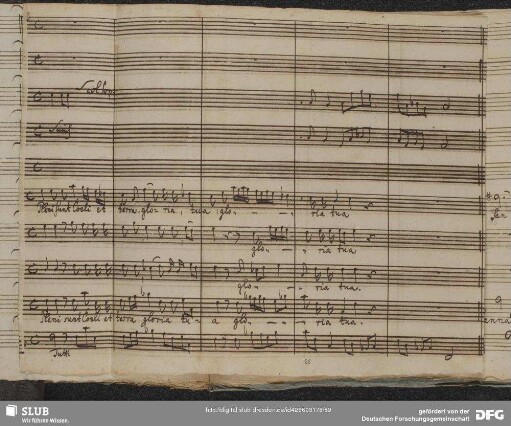 Pleni sunt Coeli et terra gloria, tua glo - - - ria tua
glo - - ria tua
glo - - ria tua.
Pleni sunt Coeli et terra gloria tu - a glo - - - ria tua.
Tutti
SLUB
Wir führen Wissen.
gefördert von der
Deutschen Forschungsgemeinschaft
DFG